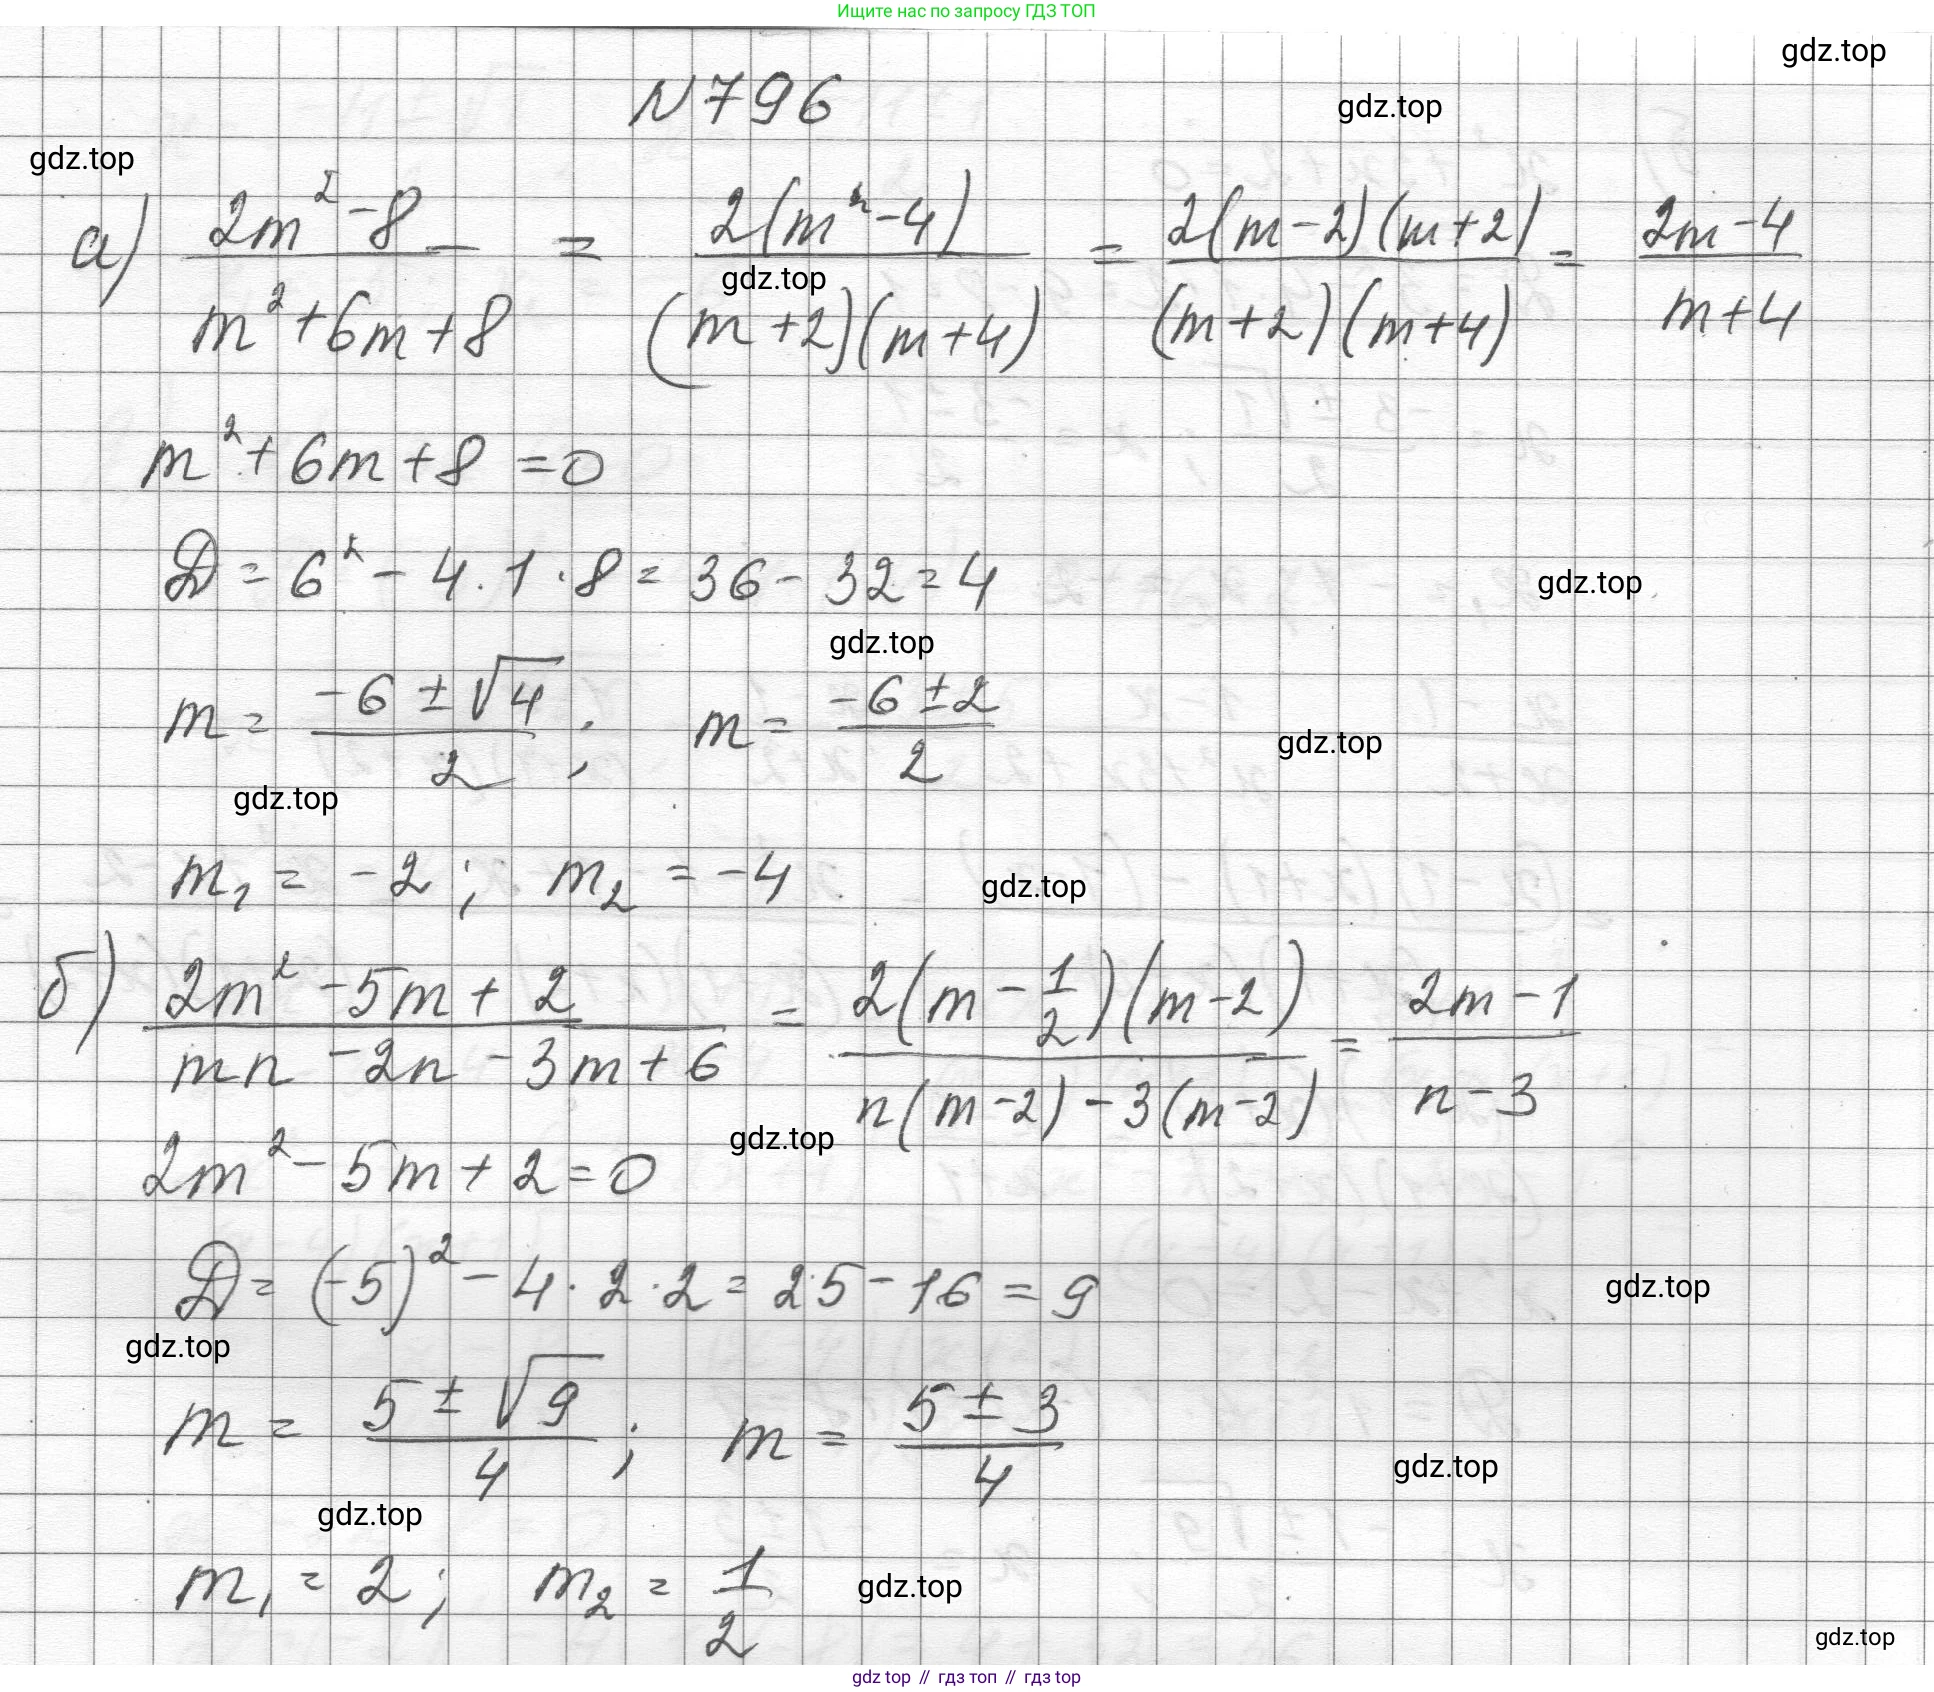 Ищите нас по запросу ГДЗ ТОП
gdz.top
N 796
gdz.top
gdz.top
а) (2m² - 8)/(m² + 6m + 8) = 2(m² - 4)/((m + 2)(m + 4)) = 2(m - 2)(m + 2)/((m + 2)(m + 4)) = (2m - 4)/(m + 4)
gdz.top
m² + 6m + 8 = 0
D = 6² - 4 · 1 · 8 = 36 - 32 = 4
gdz.top
gdz.top
m = (-6 ± √4)/2 ; m = (-6 ± 2)/2
gdz.top
gdz.top
m₁ = -2 ; m₂ = -4
gdz.top
б) (2m² - 5m + 2)/(mn - 2n - 3m + 6) = 2(m - 1/2)(m - 2)/(n(m - 2) - 3(m - 2)) = (2m - 1)/(n - 3)
gdz.top
2m² - 5m + 2 = 0
D = (-5)² - 4 · 2 · 2 = 25 - 16 = 9
gdz.top
gdz.top
m = (5 ± √9)/4 ; m = (5 ± 3)/4
gdz.top
gdz.top
m₁ = 2 ; m₂ = 1/2
gdz.top
gdz.top
gdz top // гдз топ // гдз top